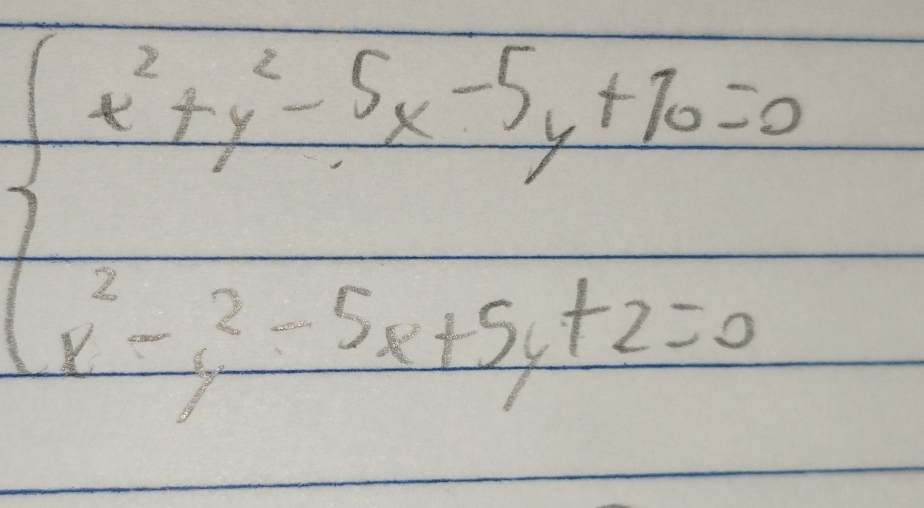 x² + y² - 5x - 5y + 10 = 0
x² - y² - 5x + 5y + 2 = 0